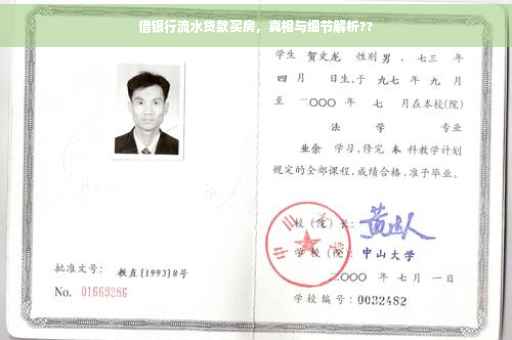 借银行流水贷款买房，真相与细节解析??
学生 贺文龙 性别 男 、七三 年
四 月 日生,于 九七 年 九 月
至 二〇〇〇 年 七 月在本校(院)
法 学 专业
业余 学习,修完 本 科教学计划
规定的全部课程,成绩合格,准予毕业。
校(院)长:
学校(院): 中山大学
批准文号: 教直[1993]8号
二〇〇〇 年 七 月 一 日
No. 01669286
学校编号: 0032482